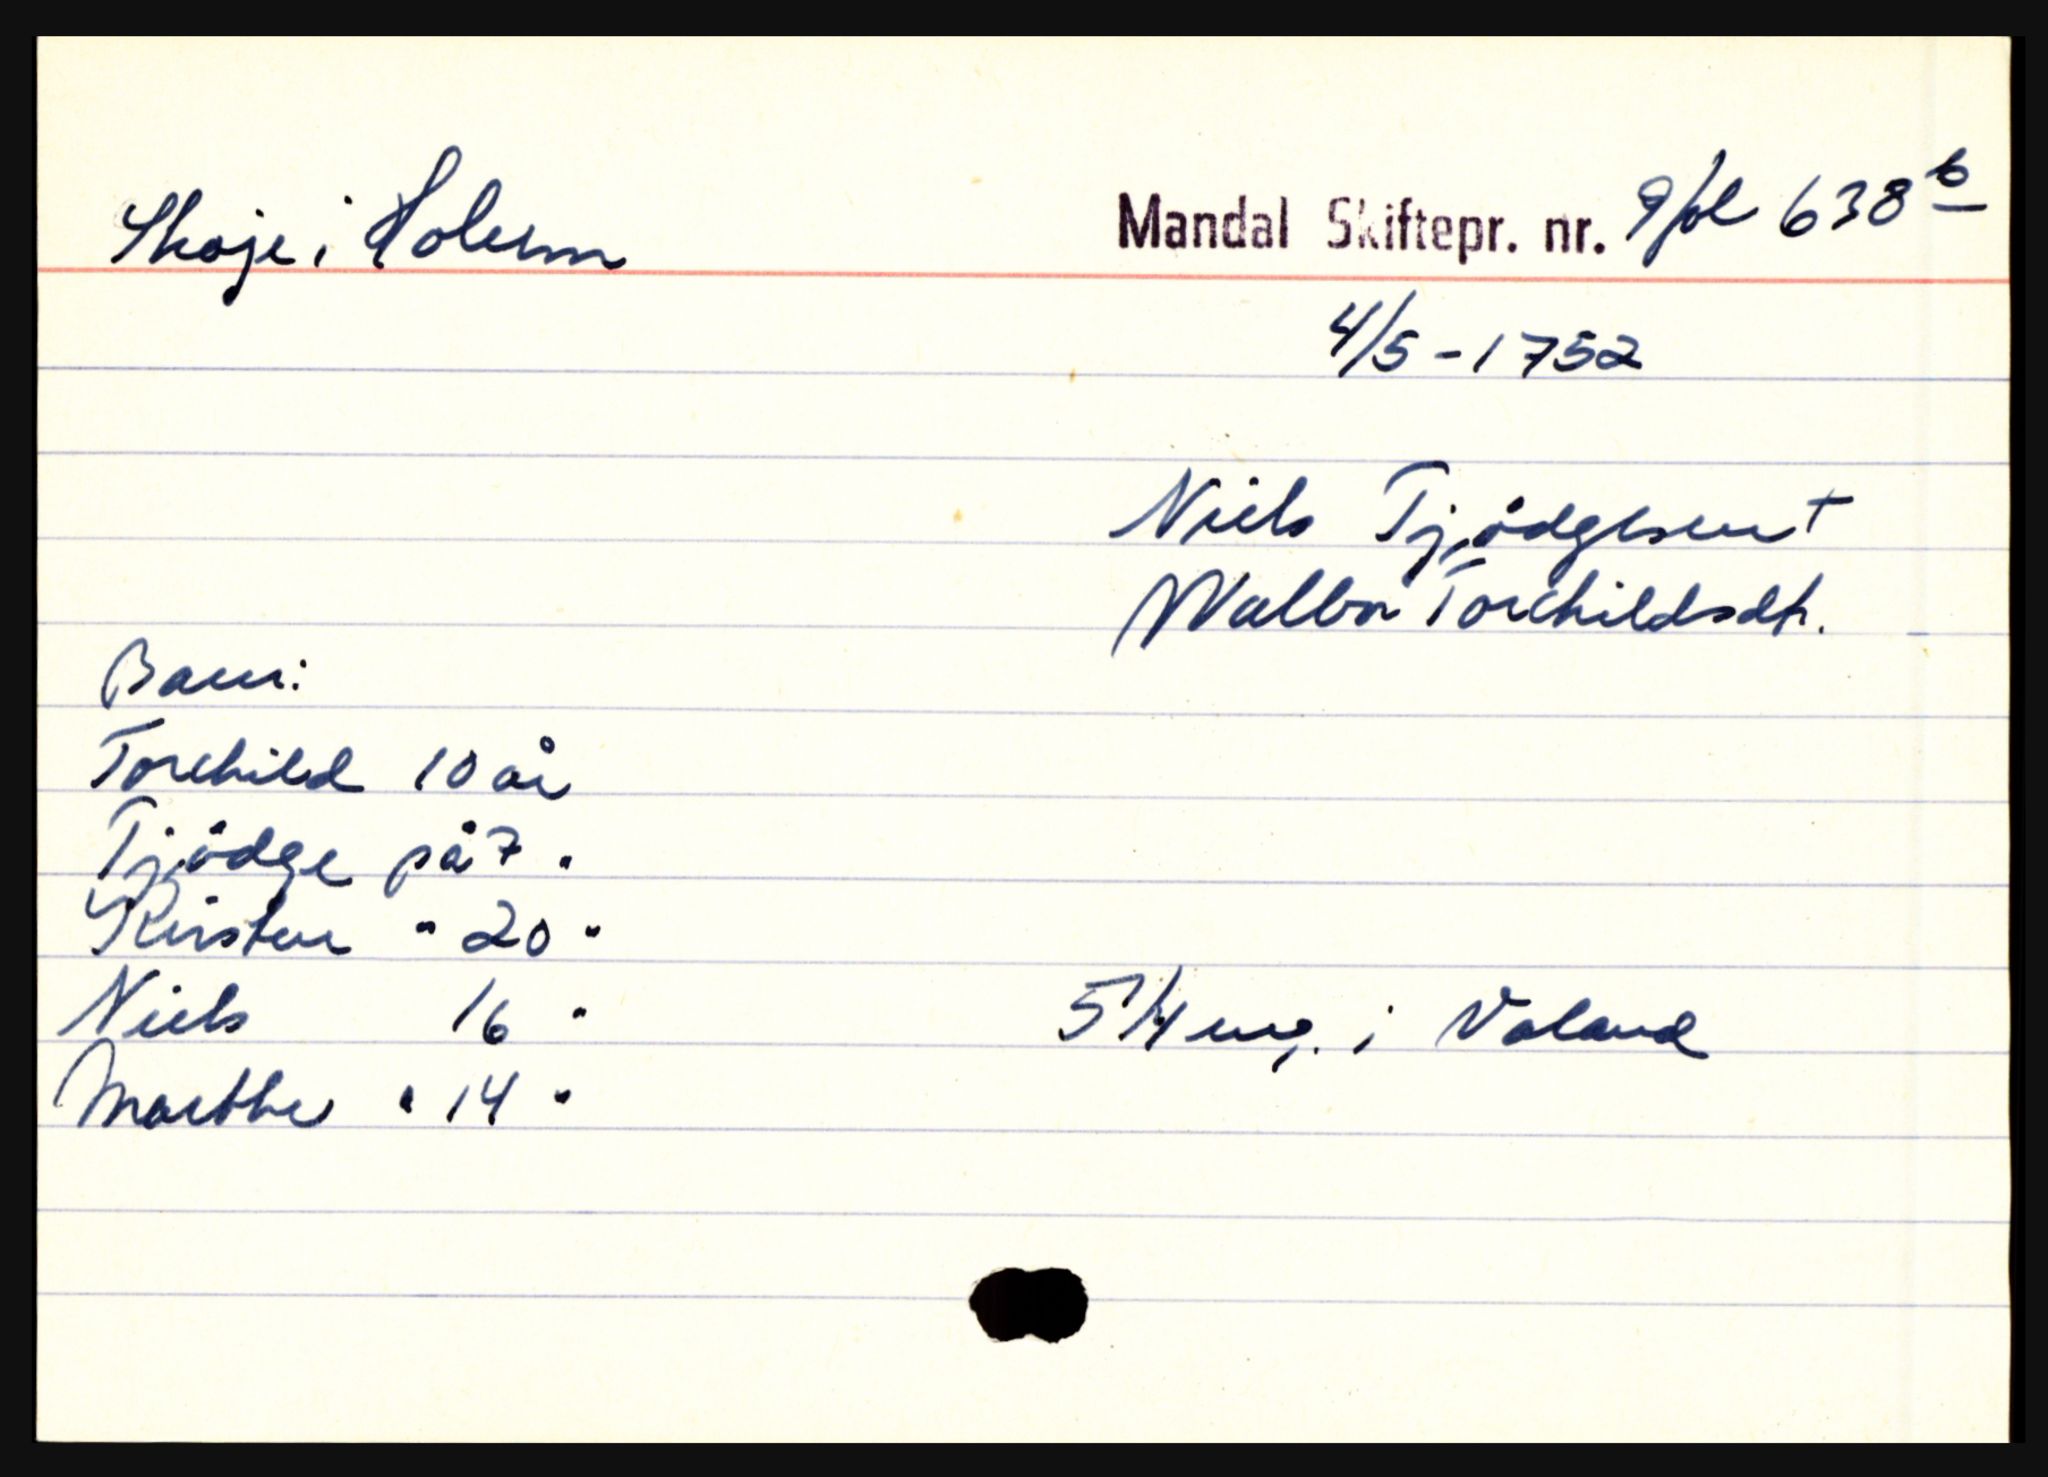 Skoje i Holum
Mandal Skiftepr. nr. 9 fol 638 b
4/5 - 1752
Niels Tjødgesen +
Walbor Torchildsdtr.
Barn:
Torchild 10 år
Tjødge på 7 "
Kirsten " 20 "
Niels 16 "
5 1/4 mg. i Valand
Marthe " 14 "